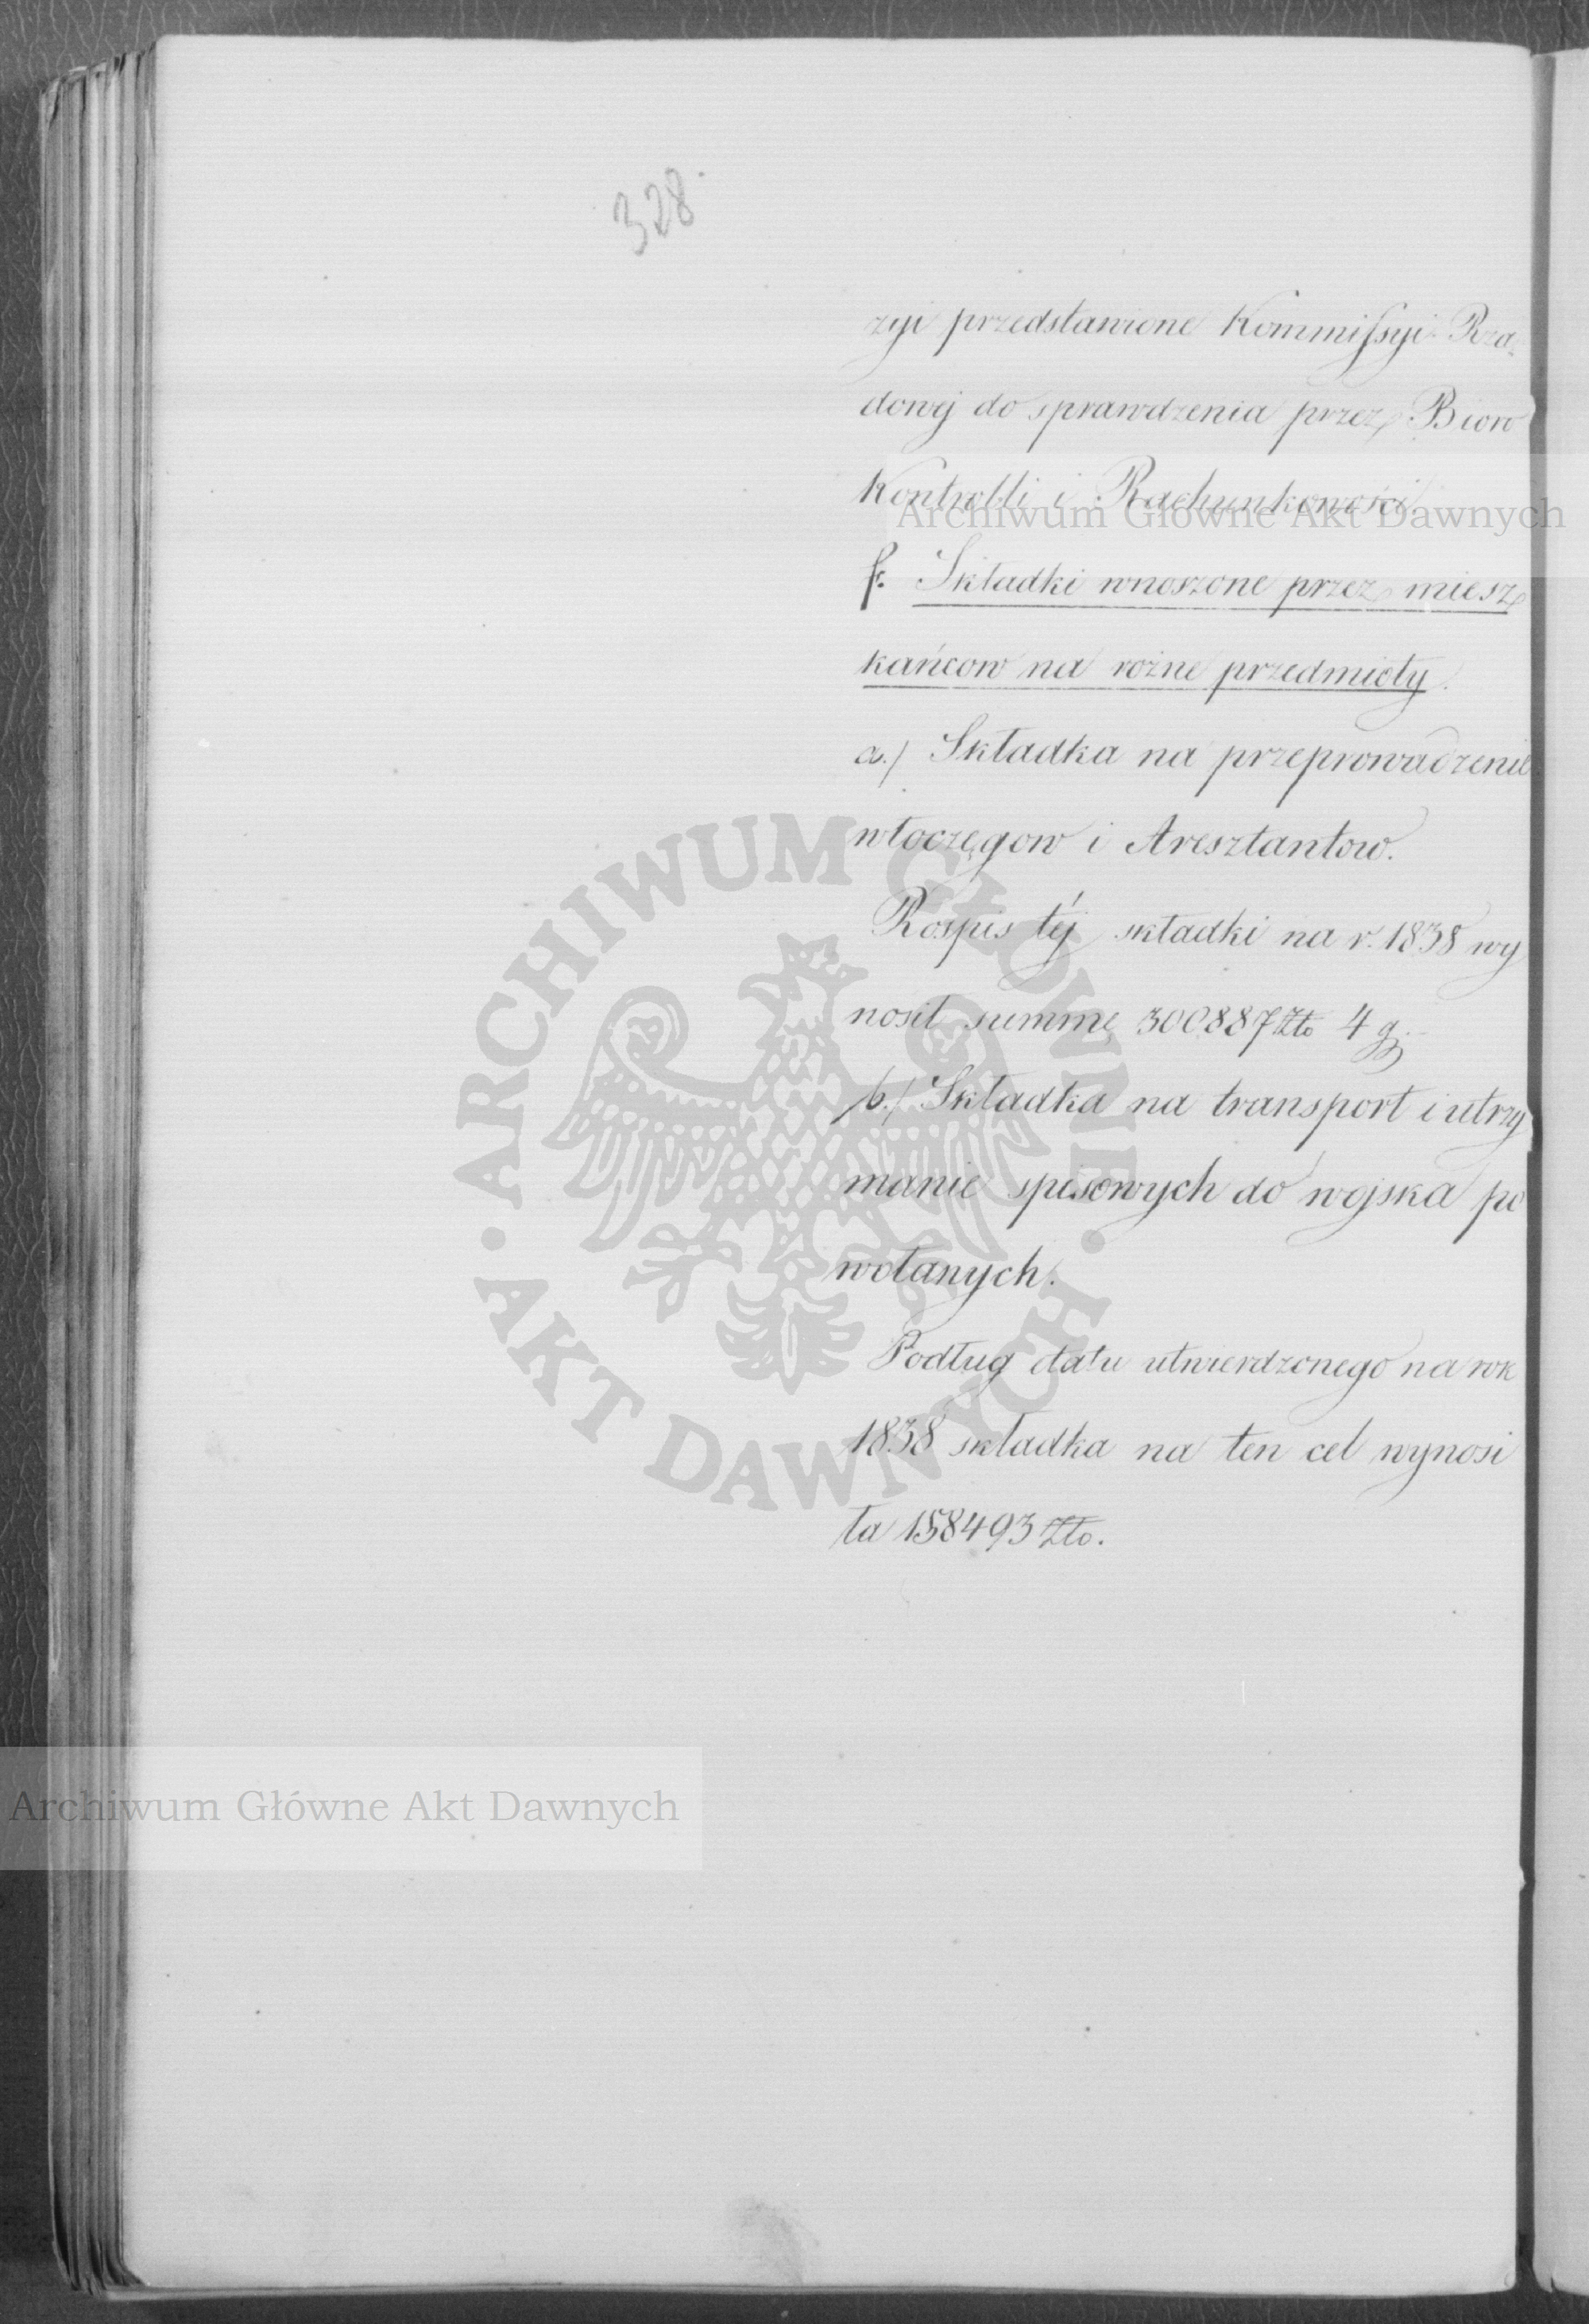 328.
zyi przedstawione Kommissyi Rzą
dowej do sprawdzenia przez Bioro
Kontrolli i Rachunkowości
Archiwum Główne Akt Dawnych
f. Składki wnoszone przez miesz
kańcow na rożne przedmioty.
a./ Składka na przeprowadzenie
włoczęgow i Aresztantow.
Rospis téj składki na r. 1838 wy
nosił summę 300887 Złto 4 g.
b./ Składka na transport i utrzy
manie spisowych do wojska po
wołanych.
Podług etatu utwierdzonego na rok
1838 składka na ten cel wynosi
ła 158493 Złto.
ARCHIWUM GŁÓWNE AKT DAWNYCH
Archiwum Główne Akt Dawnych